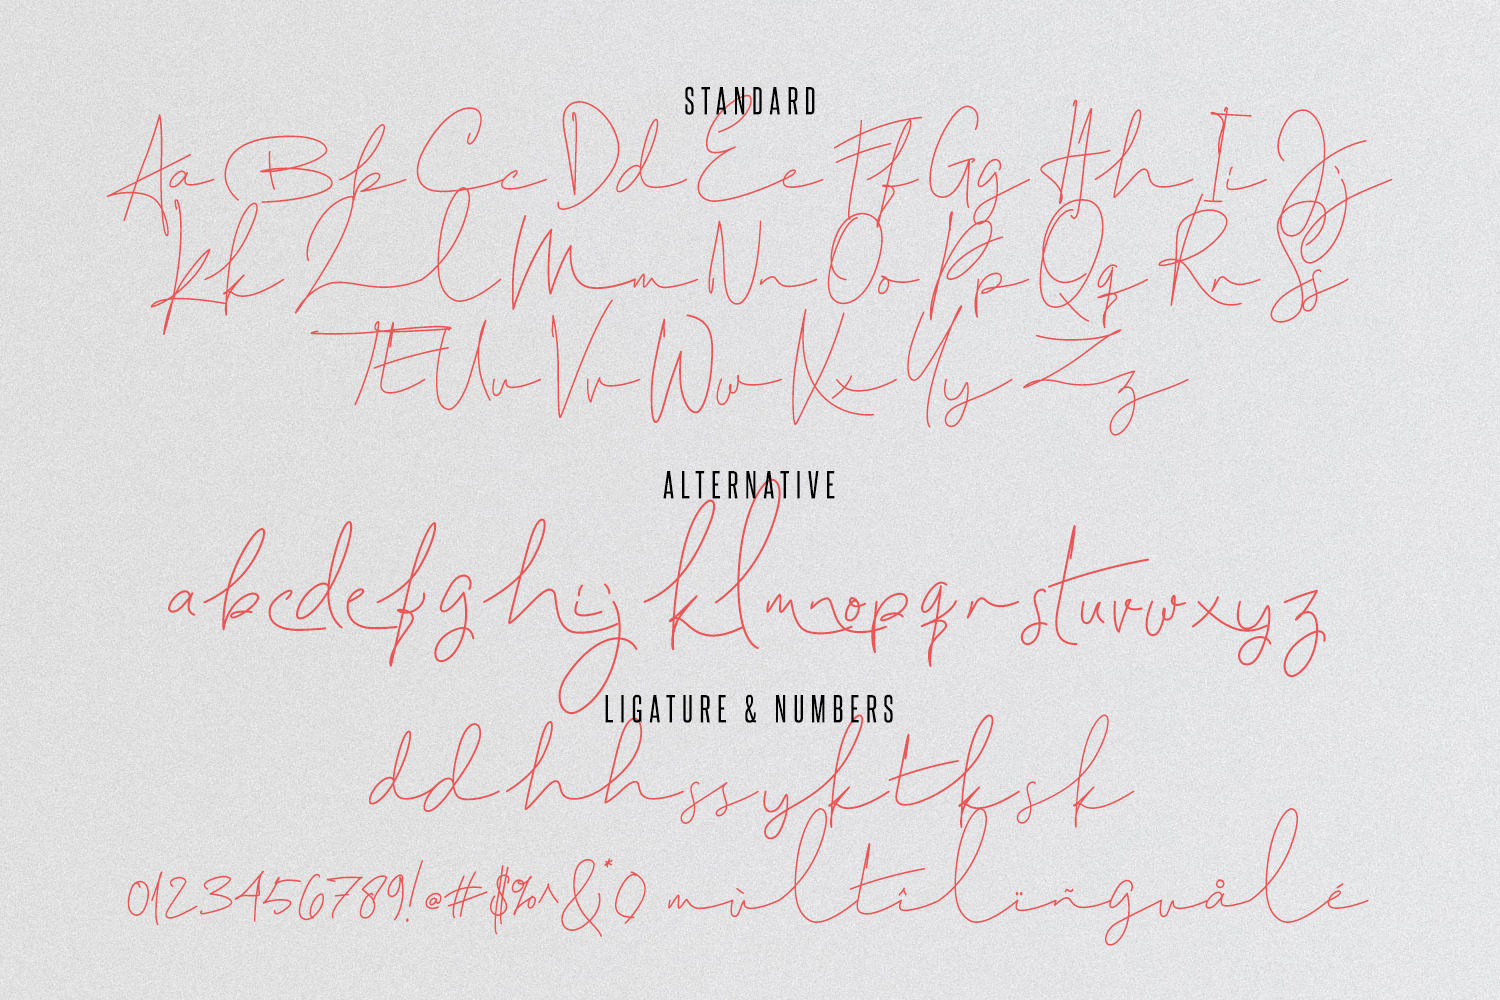 STANDARD
Aa Bb Cc Dd Ee Ff Gg Hh Ii Jj
Kk Ll Mm Nn Oo Pp Qq Rr Ss
Tt Uu Vv Ww Xx Yy Zz
ALTERNATIVE
abcdefghijklmnopqrstuvwxyz
LIGATURE & NUMBERS
dd hh ss yk tk sk
0123456789!@#$%^&*() mùltîlïñgvålé